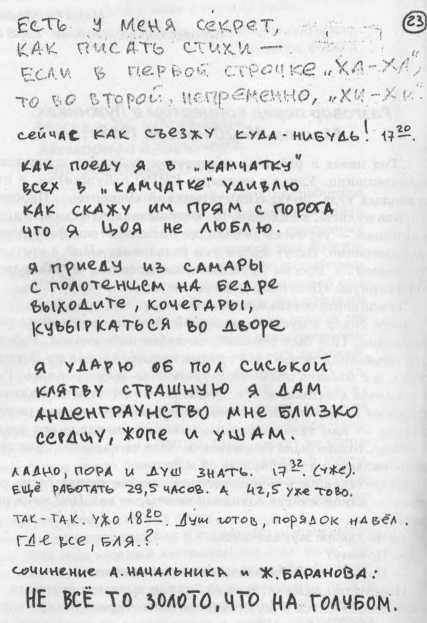 ЕСТЬ У МЕНЯ СЕКРЕТ, 23
КАК ПИСАТЬ СТИХИ —
ЕСЛИ В ПЕРВОЙ СТРОЧКЕ „ХА-ХА",
ТО ВО ВТОРОЙ, НЕПРЕМЕННО, „ХИ-ХИ".
СЕЙЧАС КАК СЪЕЗЖУ КУДА-НИБУДЬ! 17 20.
КАК ПОЕДУ Я В „КАМЧАТКУ"
ВСЕХ В „КАМЧАТКЕ" УДИВЛЮ
КАК СКАЖУ ИМ ПРЯМ С ПОРОГА
ЧТО Я ЦОЯ НЕ ЛЮБЛЮ.
Я ПРИЕДУ ИЗ САМАРЫ
С ПОЛОТЕНЦЕМ НА БЕДРЕ
ВЫХОДИТЕ, КОЧЕГАРЫ,
КУВЫРКАТЬСЯ ВО ДВОРЕ.
Я УДАРЮ ОБ ПОЛ СИСЬКОЙ
КЛЯТВУ СТРАШНУЮ Я ДАМ
АНДЕНГРАУНСТВО МНЕ БЛИЗКО
СЕРДЦУ, ЖОПЕ И УШАМ.
ЛАДНО, ПОРА И ДУШ ЗНАТЬ. 17 32 (УЖЕ).
ЕЩЁ РАБОТАТЬ 29,5 ЧАСОВ. А 42,5 УЖЕ ТОВО.
ТАК-ТАК. УЖО 18 20. ДУШ ГОТОВ, ПОРЯДОК НАВЁЛ.
ГДЕ ВСЕ, БЛЯ?
СОЧИНЕНИЕ А.НАЧАЛЬНИКА И Ж.БАРАНОВА:
НЕ ВСЁ ТО ЗОЛОТО, ЧТО НА ГОЛУБОМ.